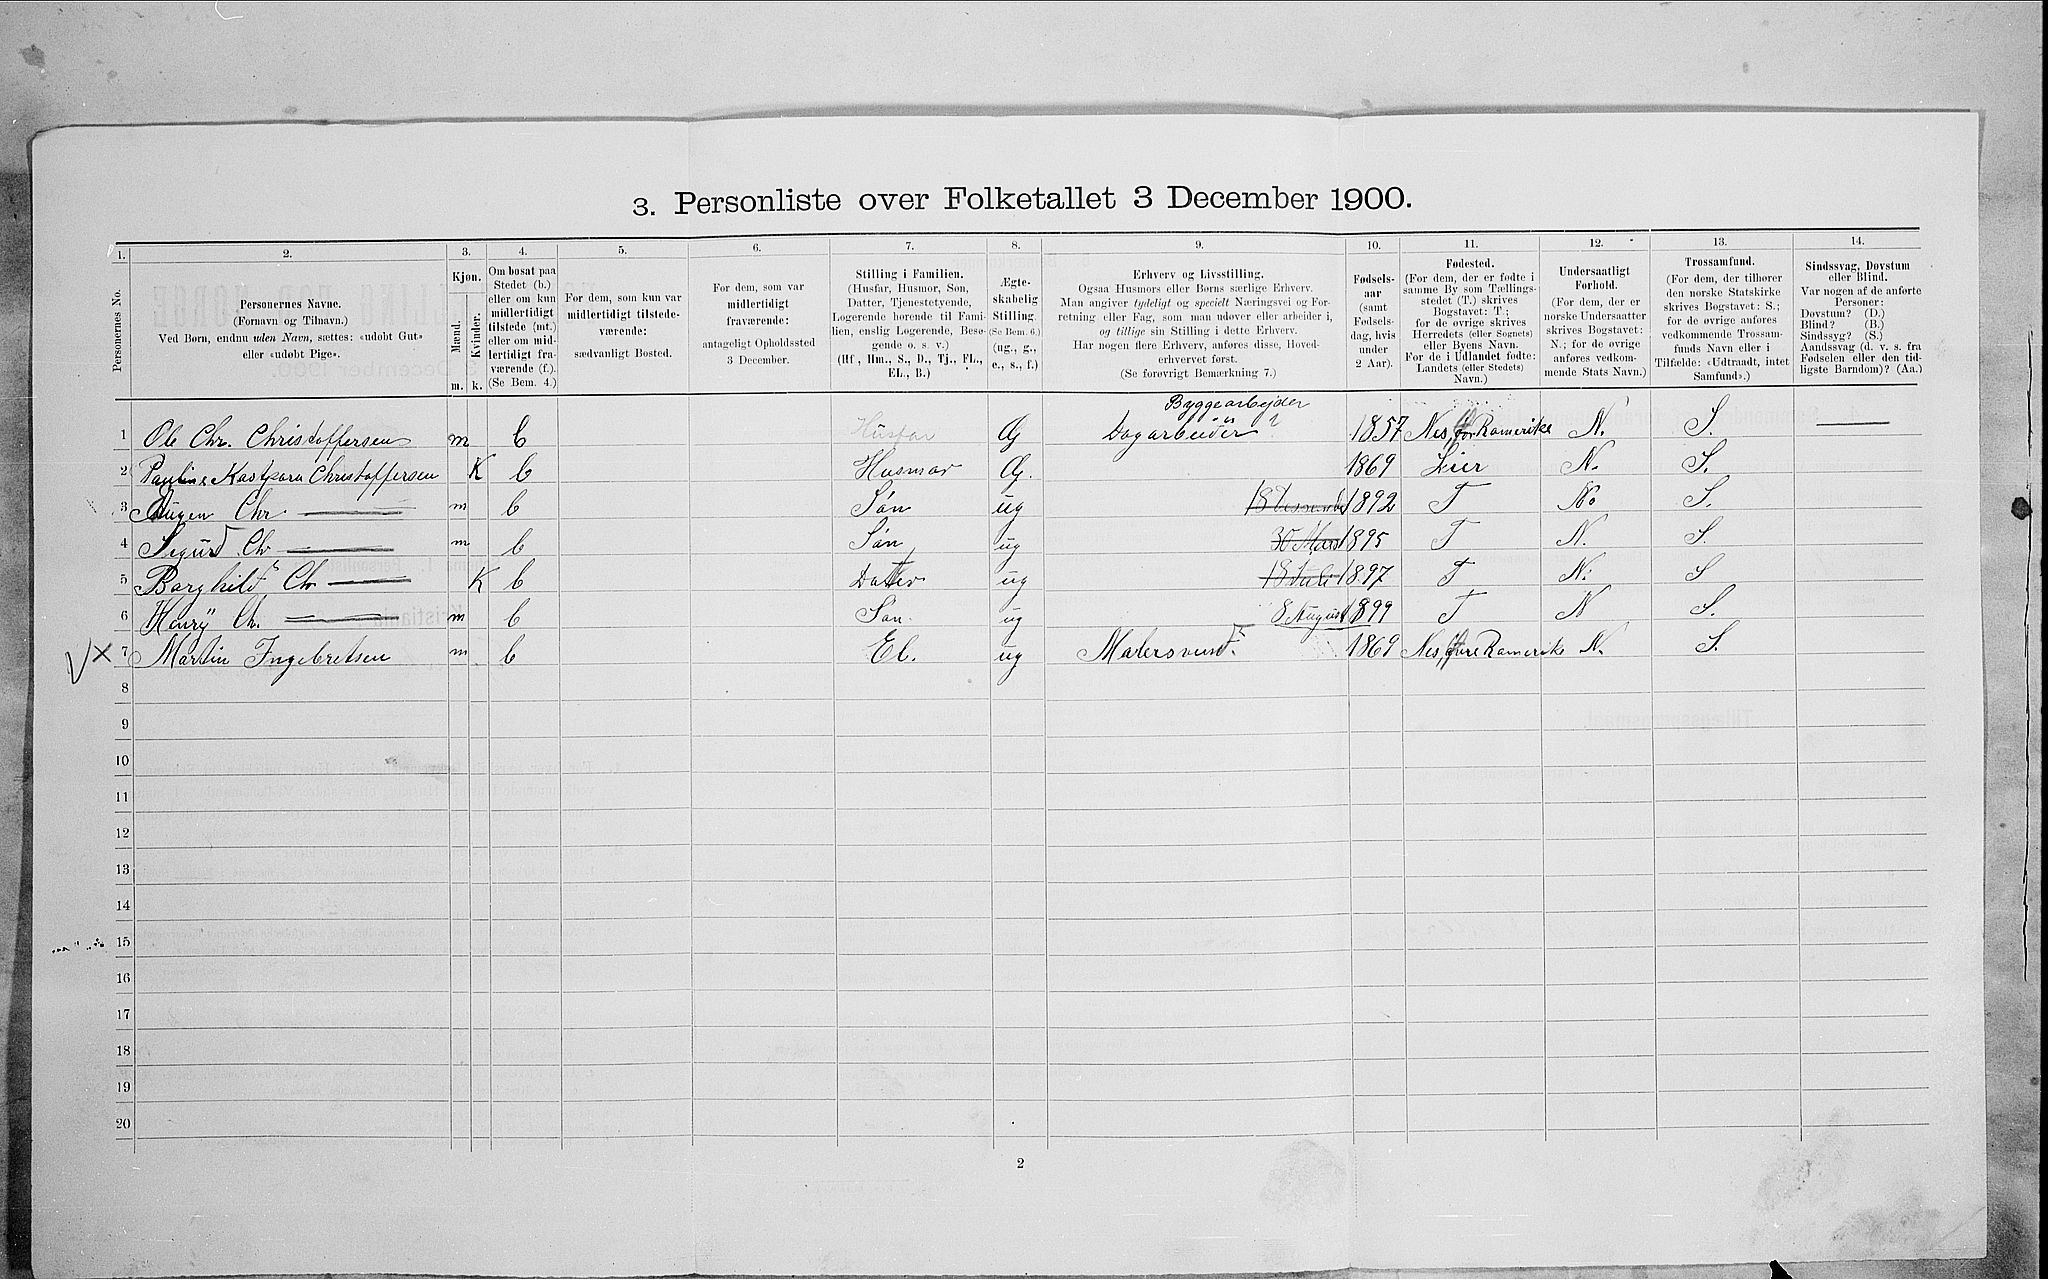 3. Personliste over Folketallet 3 December 1900.
1. 2. 3. 4. 5. 6. 7. 8. 9. 10. 11. 12. 13. 14.
Personernes No.
Personernes Navne.
(Fornavn og Tilnavn.)
Ved Børn, endnu uden Navn, sættes: «udøbt Gut»
eller «udøbt Pige».
Kjøn.
Mænd.
Kvinder.
m. k.
Om bosat paa
Stedet (b.)
eller om kun
midlertidigt
tilstede (mt.)
eller om mid-
lertidigt fra-
værende (f.).
(Se Bem. 4.)
For dem, som kun var
midlertidigt tilstede-
værende:
sædvanligt Bosted.
For dem, som var
midlertidigt
fraværende:
antageligt Opholdssted
3 December.
Stilling i Familien.
(Husfar, Husmor, Søn,
Datter, Tjenestetyende,
Logerende hørende til Fami-
lien, enslig Logerende, Besø-
gende o. s. v.)
(Hf., Hm., S., D., Tj., FL.,
EL., B.)
Ægte-
skabelig
Stilling.
(Se Bem. 6.)
(ug., g.,
e., s., f.)
Erhverv og Livsstilling.
Ogsaa Husmors eller Børns særlige Erhverv.
Man angiver tydeligt og specielt Næringsvei og For-
retning eller Fag, som man udøver eller arbeider i,
og tillige sin Stilling i dette Erhverv.
Har nogen flere Erhverv, anføres disse, Hoved-
erhvervet først.
(Se forøvrigt Bemærkning 7.)
Fødsels-
aar
(samt
Fødsels-
dag, hvis
under
2 Aar).
Fødested.
(For dem, der er fødte i
samme By som Tællings-
stedet (T.) skrives
Bogstavet: T.;
for de øvrige skrives
Herredets (eller Sognets)
eller Byens Navn.
For de i Udlandet fødte:
Landets (eller Stedets)
Navn.)
Undersaatligt
Forhold.
(For dem, der er
norske Undersaatter
skrives Bogstavet:
N.; for de øvrige
anføres vedkom-
mende Stats Navn.)
Trossamfund.
(For dem, der tilhører
den norske Statskirke
skrives Bogstavet: S.;
for de øvrige anføres
vedkommende Trossam-
funds Navn eller i
Tilfælde: «Udtraadt, intet
Samfund».)
Sindssvag, Døvstum
eller Blind.
Var nogen af de anførte
Personer:
Døvstum? (D.)
Blind? (B.)
Sindssyg? (S.)
Aandssvag (d. v. s. fra
Fødselen eller den tid-
ligste Barndom)? (Aa.)
Byggearbejder
1 Ole Chr. Christoffersen m b Husfar G Dagarbeider ? 1857 Nes, Romerike N. S.
2 Pauline Christoffersen K b Husmor G. 1869 Lier N. S.
3 Augen Chr. m b Søn ug 1892 T No S.
4 Sigurd Chr m b Søn ug 30 Mars 1895 T N. S.
5 Borghild Chr K b Datter ug 18 Juli 1897 T N. S
6 Henry Chr. m b Søn. ug 8 August 1899 T N S.
7 Martin Ingebretsen m b El. ug Malersvend 1869 Nes, Øvre Romerike N. S.
8
9
10
11
12
13
14
15
16
17
18
19
20
2